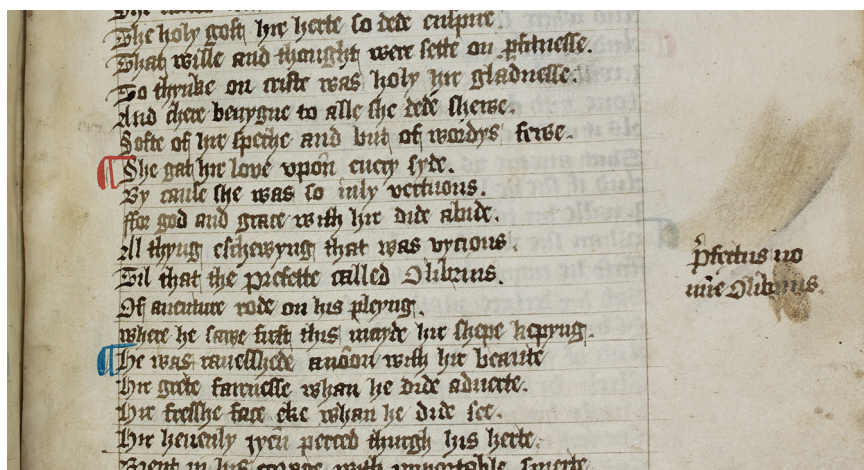 The holy gost hir herte so dede enspire.
That wille and thought were sette on pfitnesse.
To thynke on criste was holy hir gladnesse.
And chere benygne to alle she dede shewe.
Softe of hir speche and but of wordys fewe.
She gat hir love vpon euery syde.
By cause she was so inly vertuous.
ffor god and grace with hir dide abide.
All thyng eschewyng that was vycious.
Til that the prefette called Olibrius.
Of auenture rode on his pleyng.
where he sawe first this mayde hir shepe kepyng.
He was raueshede anoon with hir beaute
Hir grete fairnesse whan he dide aduerte.
Hir fresshe face eke whan he dide see.
Hir heuenly iyen perced thurgh his herte.
Brent in his corage with importable smerte.
pfectus no
mie Olibrius.